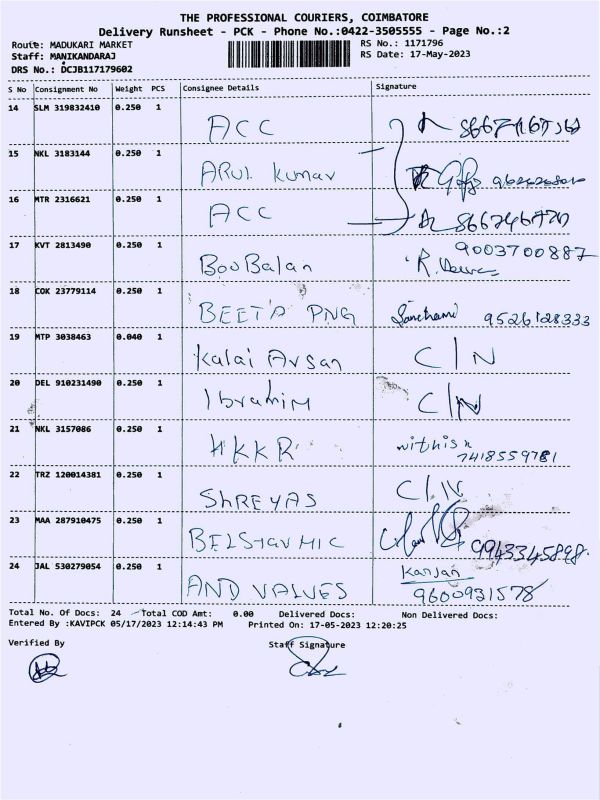 THE PROFESSIONAL COURIERS, COIMBATORE
Delivery Runsheet - PCK - Phone No.:0422-3505555 - Page No.:2
Route: MADUKARI MARKET RS No.: 1171796
Staff: MANIKANDARAJ RS Date: 17-May-2023
DRS No.: DCJB117179602
S No Consignment No Weight PCS Consignee Details Signature
14 SLM 319832410 0.250 1 ACC
15 NKL 3183144 0.250 1 ARUL Kumar
16 MTR 2316621 0.250 1 ACC
17 KVT 2813490 0.250 1 BooBalan 9003700887
18 COK 23779114 0.250 1 BEETA PNG 9526128333
19 MTP 3038463 0.040 1 Kalai Arsan C/N
20 DEL 910231490 0.250 1 Ibrahim C/N
21 NKL 3157086 0.250 1 HKKR Nithish
7418559781
22 TRZ 120014381 0.250 1 SHREYAS C/N
23 MAA 287910475 0.250 1 9943345898
24 JAL 530279054 0.250 1 AND VALVES Kanjan
9600931578
Total No. Of Docs: 24 Total COD Amt: 0.00 Delivered Docs: Non Delivered Docs:
Entered By :KAVIPCK 05/17/2023 12:14:43 PM Printed On: 17-05-2023 12:20:25
Verified By Staff Signature